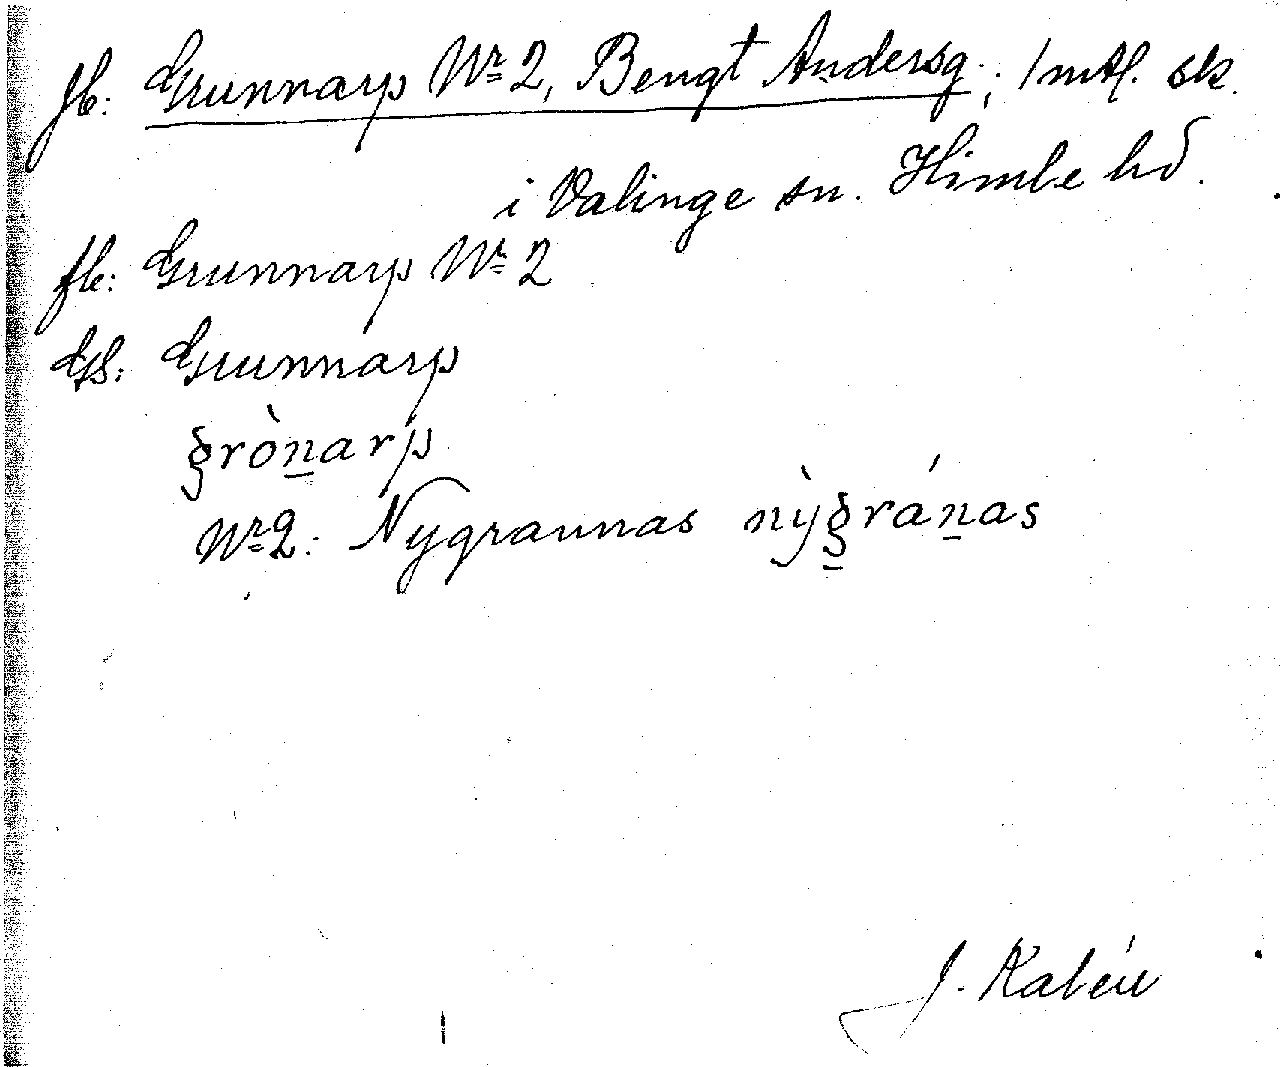 Jb: Grunnarp Nr 2, Bengt Andersg.; 1 mtl. sk.
i Valinge sn. Himle hd.
fb: Grunnarp Nr 2
GS: Grunnarp
gròn̲arp
Nr 2: Nygraunas nỳg̲rán̲as
J. Kalén